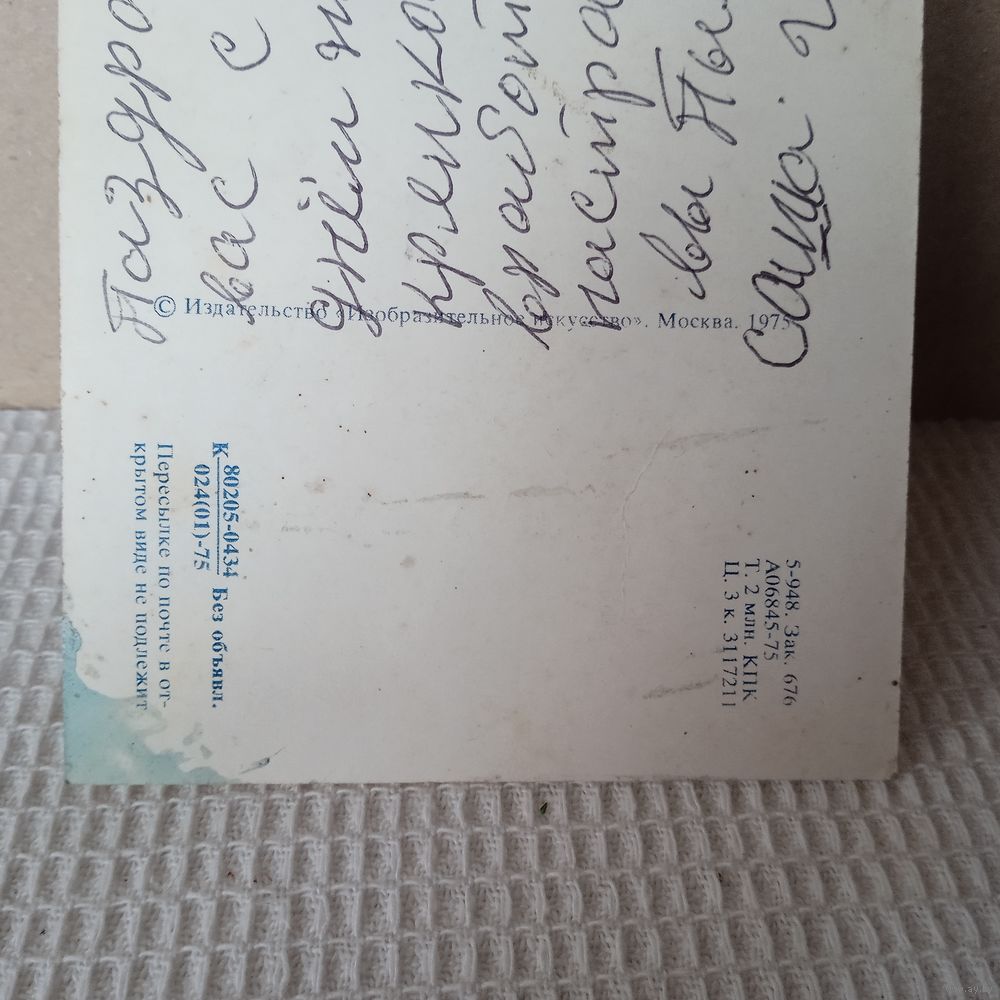 Поздра
вас с
днём
крепко
в работ
настро
Вы
Саша. 2
© Издательство «Изобразительное искусство». Москва. 1975
К 80205-0434 Без объявл.
024(01)-75
Пересылке по почте в от-
крытом виде не подлежит
5-948. Зак. 676
А06845-75
Т. 2 млн. КПК
Ц. 3 к. 3117211